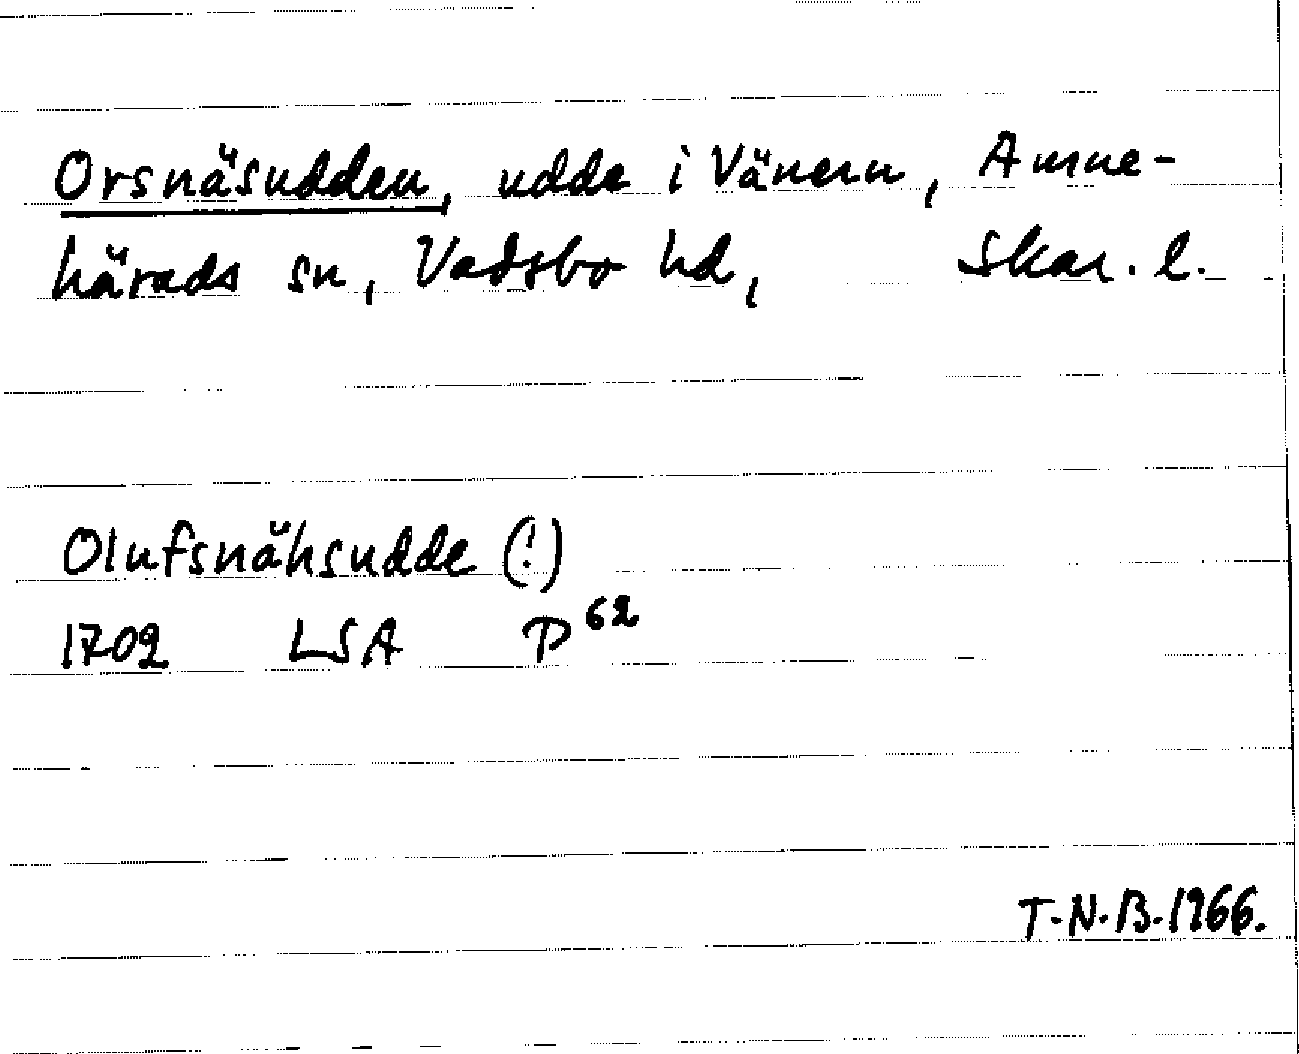 Orsnäsudden, udde i Vänern, Amne-
härads sn, Vadsbo hd, Skar. l.
Olufsnähsudde (!)
1702 LSA P 62
T.N.B. 1966.